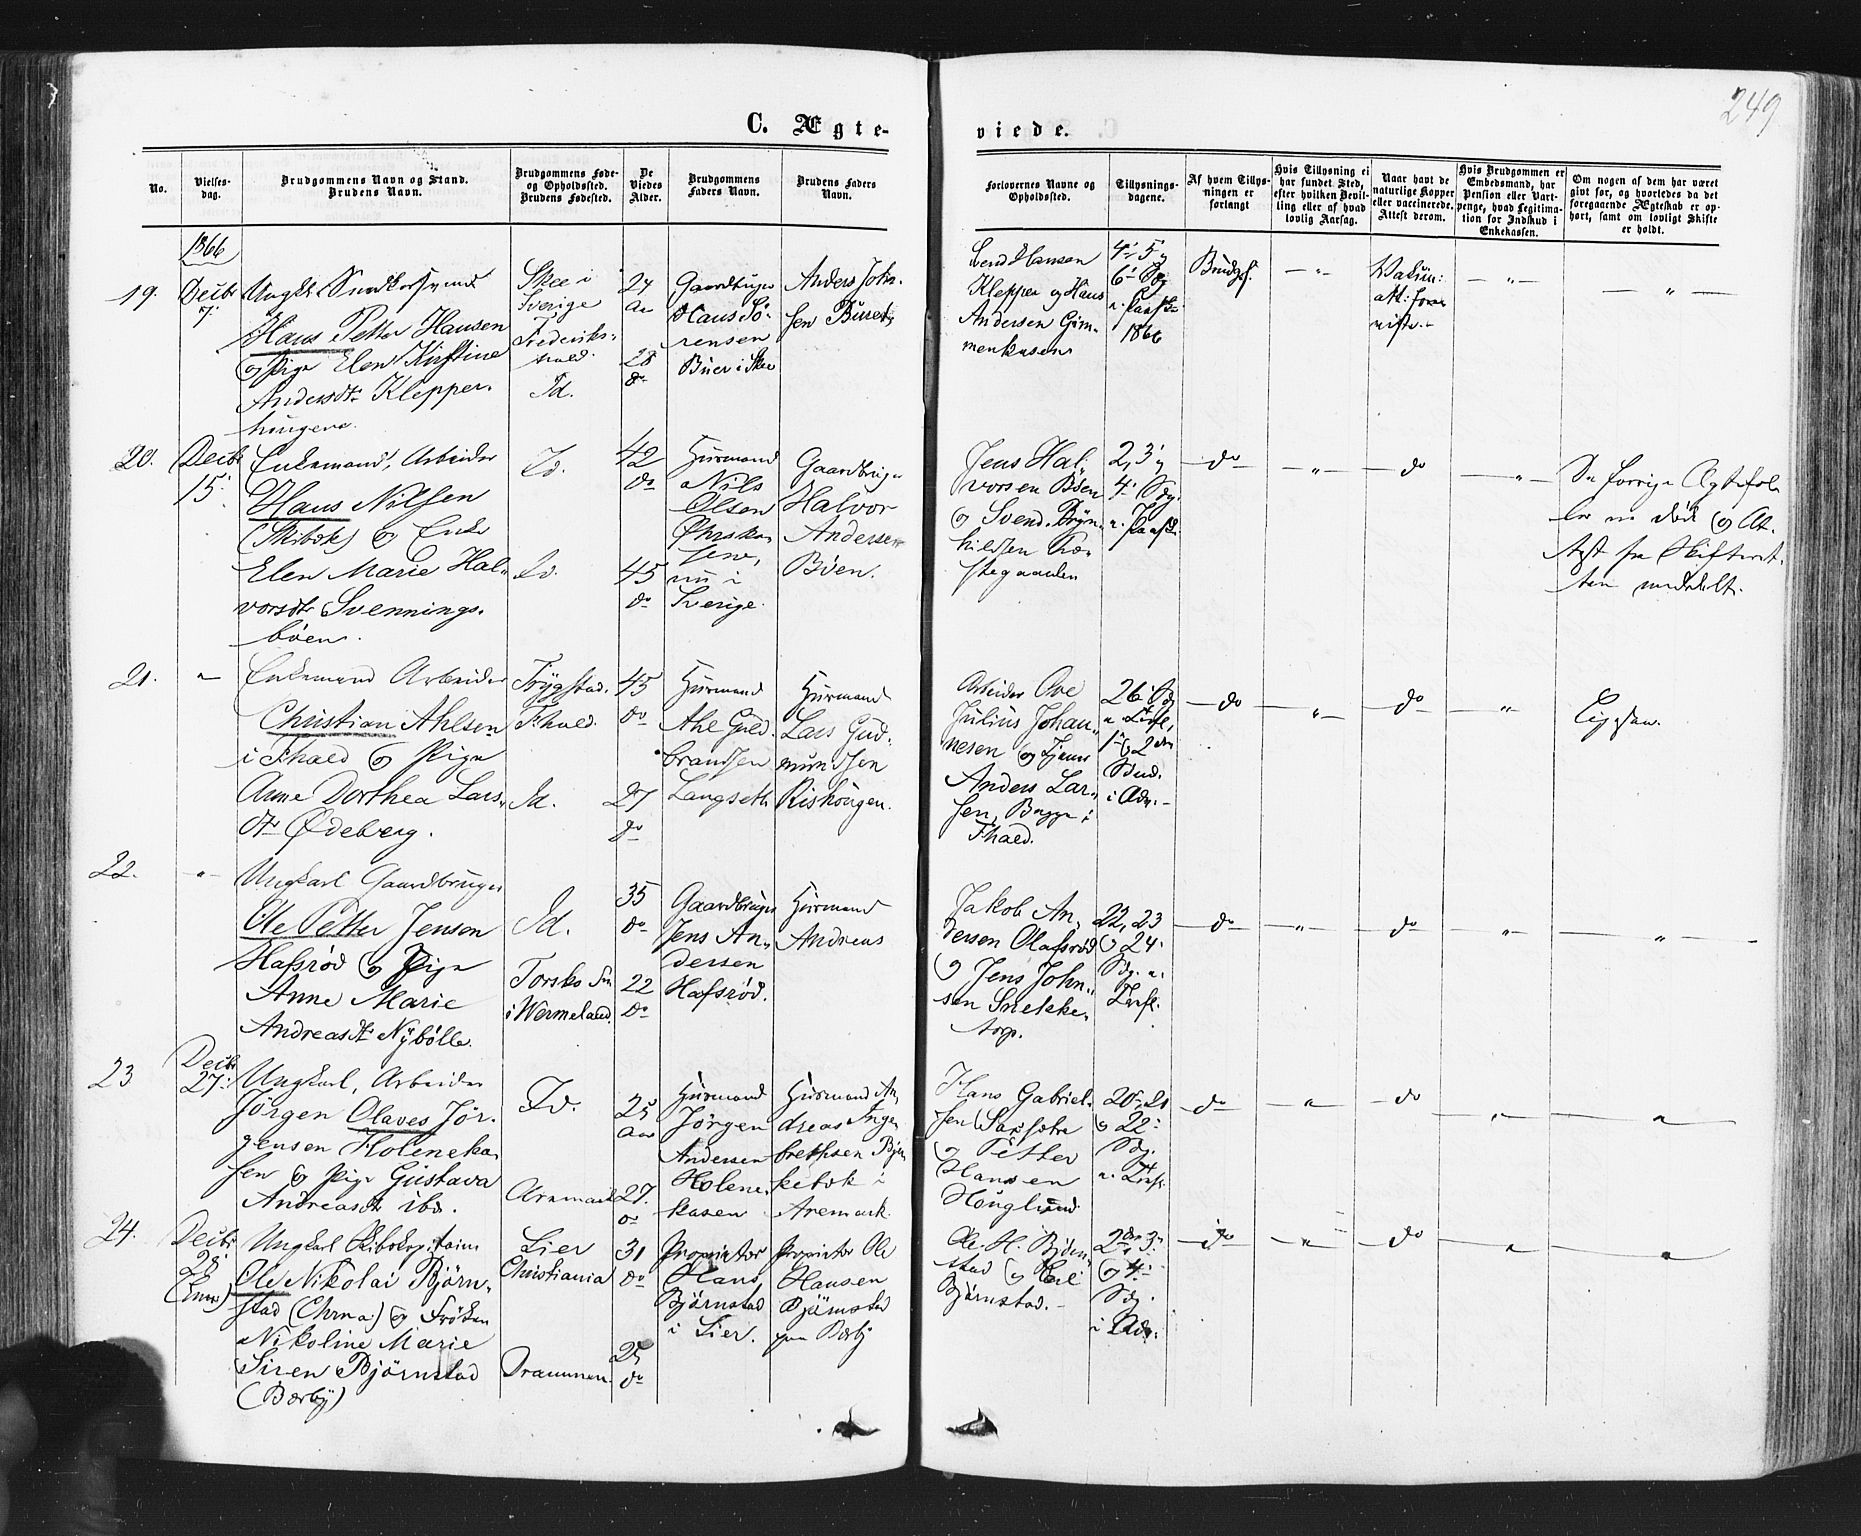 249
C. Ægte-
viede.
No.
Vielses-
dag.
Brudgommens Navn og Stand.
Brudens Navn.
Brudgommens Føde-
og Opholdssted.
Brudens Fødested.
De
Viedes
Alder.
Brudgommens
Faders Navn.
Brudens Faders
Navn.
Forlovernes Navne og
Opholdssted.
Tillysnings-
dagene.
Af hvem Tillys-
ningen er
forlangt
Hvis Tillysning ei
har fundet Sted,
efter hvilken Bevil-
ling eller af hvad
lovlig Aarsag.
Naar havt de
naturlige Kopper
eller vaccinerede.
Attest derom.
Hvis Brudgommen er
Embedsmand, har
Pension eller Vart-
penge, hvad Legitima-
tion for Indskud i
Enkekassen.
Om nogen af dem har været
gift før, og hvorledes da det
foregaaende Ægteskab er op-
hørt, samt om lovligt Skifte
er holdt.
1866
19.
Decbr
7.
Ungk.
Hans Petter Hansen
og Pige Elen Kirstine
Andersdtr Klepper-
haugene.
Skee i
Sverige
Frederiks-
hald.
Id.
24
Aar
28
do
Gaardbruger
Hans Sö-
rensen
Büer i Skee
Anders John-
sen
Svend Hansen
Klepper og Hans
Andersen Gim-
menkasen
4, 5 og
6 Sdg
1866
Brudgf.
- " -
- " -
- " -
20.
Decbr
15.
Enkemand, Arbeider
Hans Nilsen
(Skibstk) og Enke
Elen Marie Hal-
vorsdtr Svennings-
böen.
Id.
Id.
42
do
45
do
Huusmand
Nils
Olsen
nu i
Sverige.
Gaardbruger
Halvor
Andersen
Böen.
Jens Hal-
vorsen Böen
og Svend Bryn-
hildsen
2, 3 og
4 Sdg.
- do
"
do
- " -
De forrige Ægtefol-
ler er död og At-
test fra Skifteret-
ten meddelt.
21.
"
Enkemand Arbeider
Christian Ahlsen
i Fhald og Pige
Anne Dorthea Lars-
dtr Ødeberg.
Trygstad.
Fhald.
Id.
45
do
27
do
Huusmand
Ahl Guld-
brandsen
Langseth
Huusmand
Lars Gud-
mundsen
Rishougen.
Arbeider Ove
Julius Johan-
nesen og Tjener
Anders Lar-
sen, Bagge i
Fhald.
26 Sdg
1 og 2den
Sønd.
i Adv.
- do
"
do
"
Ligesaa.
22.
"
Ungkarl Gaardbruger
Ole Petter Jensen
Hafsröd og Pige
Anne Marie
Andreasdtr Nybölle.
Id.
i Wermeland.
35
do
22
do
Gaardbruger
Jens An-
dersen
Hafsröd.
Huusmand
Andreas
Jakob An-
dersen Olafsröd
og Jens John-
sen Snekke-
torp.
22, 23
og 24
Sdg. e.
Trefl.
do
"
do
"
"
23
Decbr
27.
Ungkarl, Arbeider
Jörgen Olaves Jör-
gensen Holeneka-
sen og Pige Gustava
Andreasdtr ibd.
Id.
Aremark
25
Aar
27.
do
Huusmand
Jörgen
Andersen
Holene-
kasen
Huusmand An-
dreas Inge-
brethsen
Aremark.
Hans Gabriel-
sen
og Petter
Hansen
Houglund.
20, 21
og 22
Sdg.
e. Trefl.
do
"
do
"
"
24.
Decbr
28
Ungkarl Skibskaptain
Ole Nikolai Björn-
stad (Chrna) og Fröken
Nikoline Marie
Siren Björnstad
(Bærby)
Lier
Christiania
Drammen.
31
do
25
do
Proprietær
Hans
Björnstad
i Lier.
Proprietær Ole
Hansen
Björnstad
paa Bærby
Ole H. Björn-
stad og
Björnstad.
2den 3
og 4
Sdg.
i Adv.
do
"
do
"
"